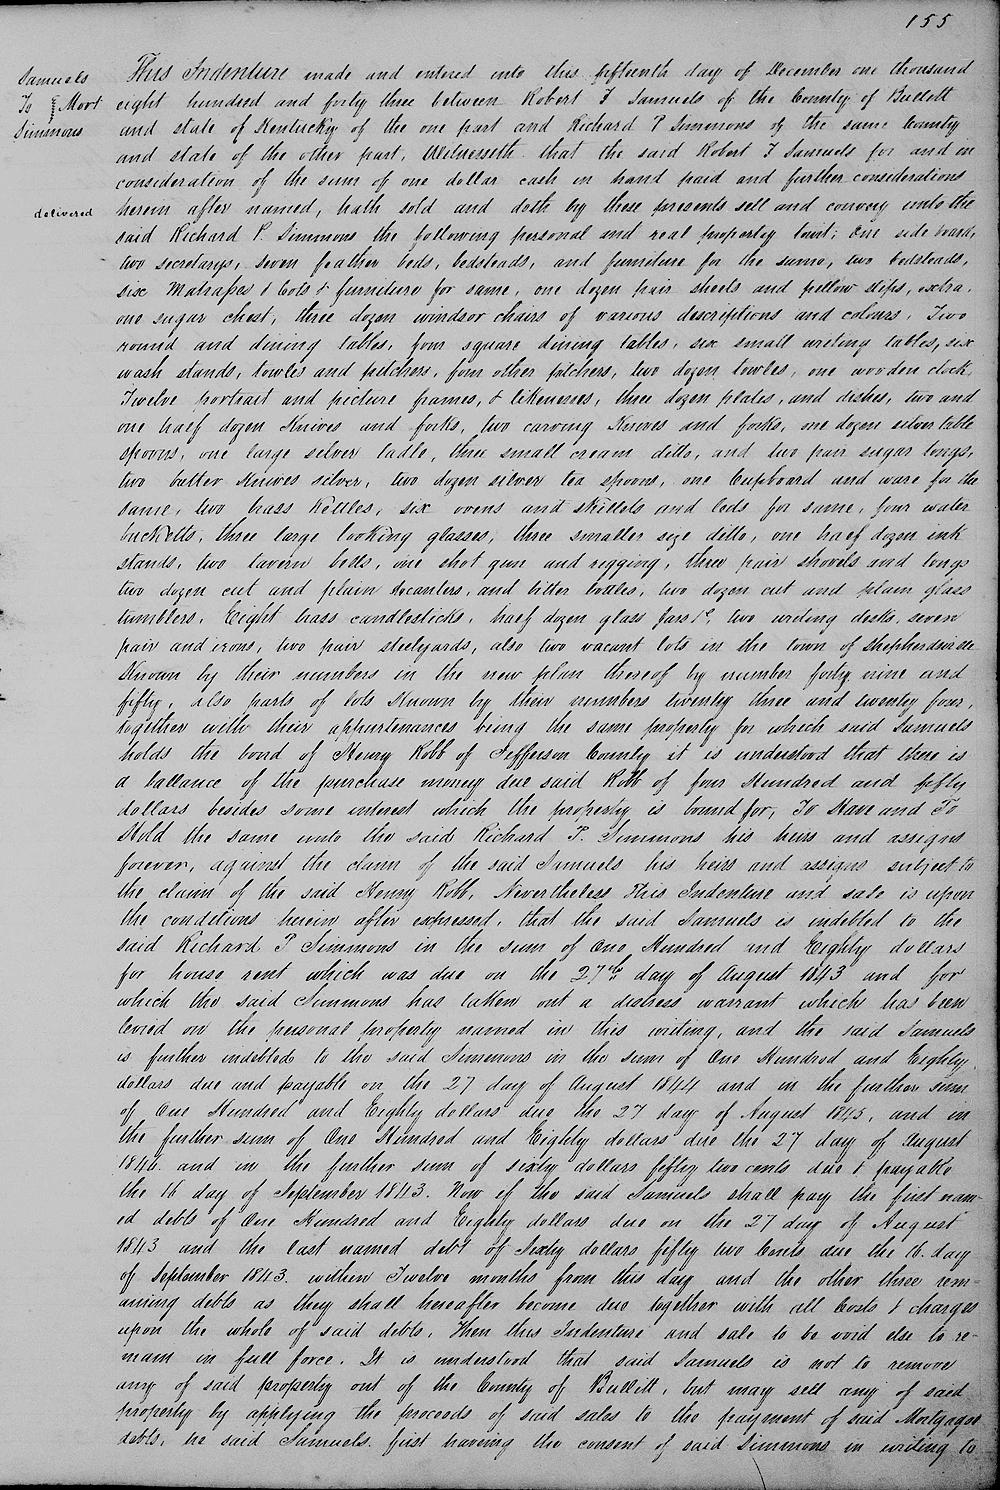 155
Samuels
To } Mort
Simmons
delivered
This Indenture made and entered into this fifteenth day of December one thousand
eight hundred and forty three between Robert F Samuels of the County of Bullitt
and state of Kentucky of the one part and Richard P Simmons of the same County
and state of the other part, Witnesseth that the said Robert F Samuels for and in
consideration of the sum of one dollar cash in hand paid and further considerations
herein after named, hath sold and doth by these presents sell and convey unto the
said Richard P. Simmons the following personal and real property towit; One side board,
two secretarys, seven feather beds, bedsteads, and furniture for the same, two bedsteads,
six Matrasses & Cots & furniture for same, one dozen pair sheets and pillow slips, extra,
one sugar chest, three dozen windsor chairs of various descriptions and colours, Two
round and dining tables, four square dining tables, six small writing tables, six
wash stands, bowles and pitchers, four other pitchers, two dozen towles, one wooden clock,
Twelve portrait and picture frames, & likenesses, three dozen plates, and dishes, two and
one half dozen Knives and forks, two carving Knives and forks, one dozen silver table
spoons, one large silver ladle, three small cream ditto, and two pair sugar tongs,
two butter Knives silver, two dozen silver tea spoons, one Cupboard and ware for the
same, two brass Kettles, six ovens and skillets and leds for same, four water
bucketts, three large looking glasses, three smaller size ditto, one half dozen ink
stands, two tavern bells, one shot gun and rigging, three pair shovels and tongs
two dozen cut and plain decanters, and bitter bottles, two dozen cut and plain glass
tumblers, Eight brass candlesticks, half dozen glass jars &c, two writing desks, seven
pair and irons, two pair steelyards, also two vacant lots in the town of Shepherdsville
Known by their numbers in the new plan thereof by number forty nine and
fifty, also parts of lots Known by their numbers twenty three and twenty four,
together with their appurtenances being the same property for which said Samuels
holds the bond of Henry Robb of Jefferson County it is understood that there is
a ballance of the purchase money due said Robb of four Hundred and fifty
dollars besides some interest which the property is bound for, To Have and To
Hold the same unto the said Richard P. Simmons his heirs and assigns
forever, against the claim of the said Samuels his heirs and assigns subject to
the claim of the said Henry Robb, Nevertheless This Indenture and sale is upon
the conditions herein after expressed, that the said Samuels is indebted to the
said Richard P Simmons in the sum of One Hundred and Eighty dollars
for house rent which was due on the 27th day of August 1843 and for
which the said Simmons has taken out a distress warrant which has been
levied on the personal property named in this writing, and the said Samuels
is further indebted to the said Simmons in the sum of One Hundred and Eighty
dollars due and payable on the 27 day of August 1844 and in the further sum
of One Hundred and Eighty dollars due the 27 day of August 1845, and in
the further sum of One Hundred and Eighty dollars due the 27 day of August
1846 and in the further sum of sixty dollars fifty two cents due & payable
the 16 day of September 1843. Now if the said Samuels shall pay the first nam-
ed debts of One Hundred and Eighty dollars due on the 27 day of August
1843 and the last named debt of Sixty dollars fifty two Cents due the 16 day
of September 1843. within Twelve months from this day and the other three rem-
aining debts as they shall hereafter become due together with all Costs & charges
upon the whole of said debts, Then this Indenture and sale to be void else to re-
main in full force. It is understood that said Samuels is not to remove
any of said property out of the County of Bullitt, but may sell any of said
property by applying the proceeds of said sales to the payment of said Mortgage
debts, he said Samuels first having the consent of said Simmons in writing to